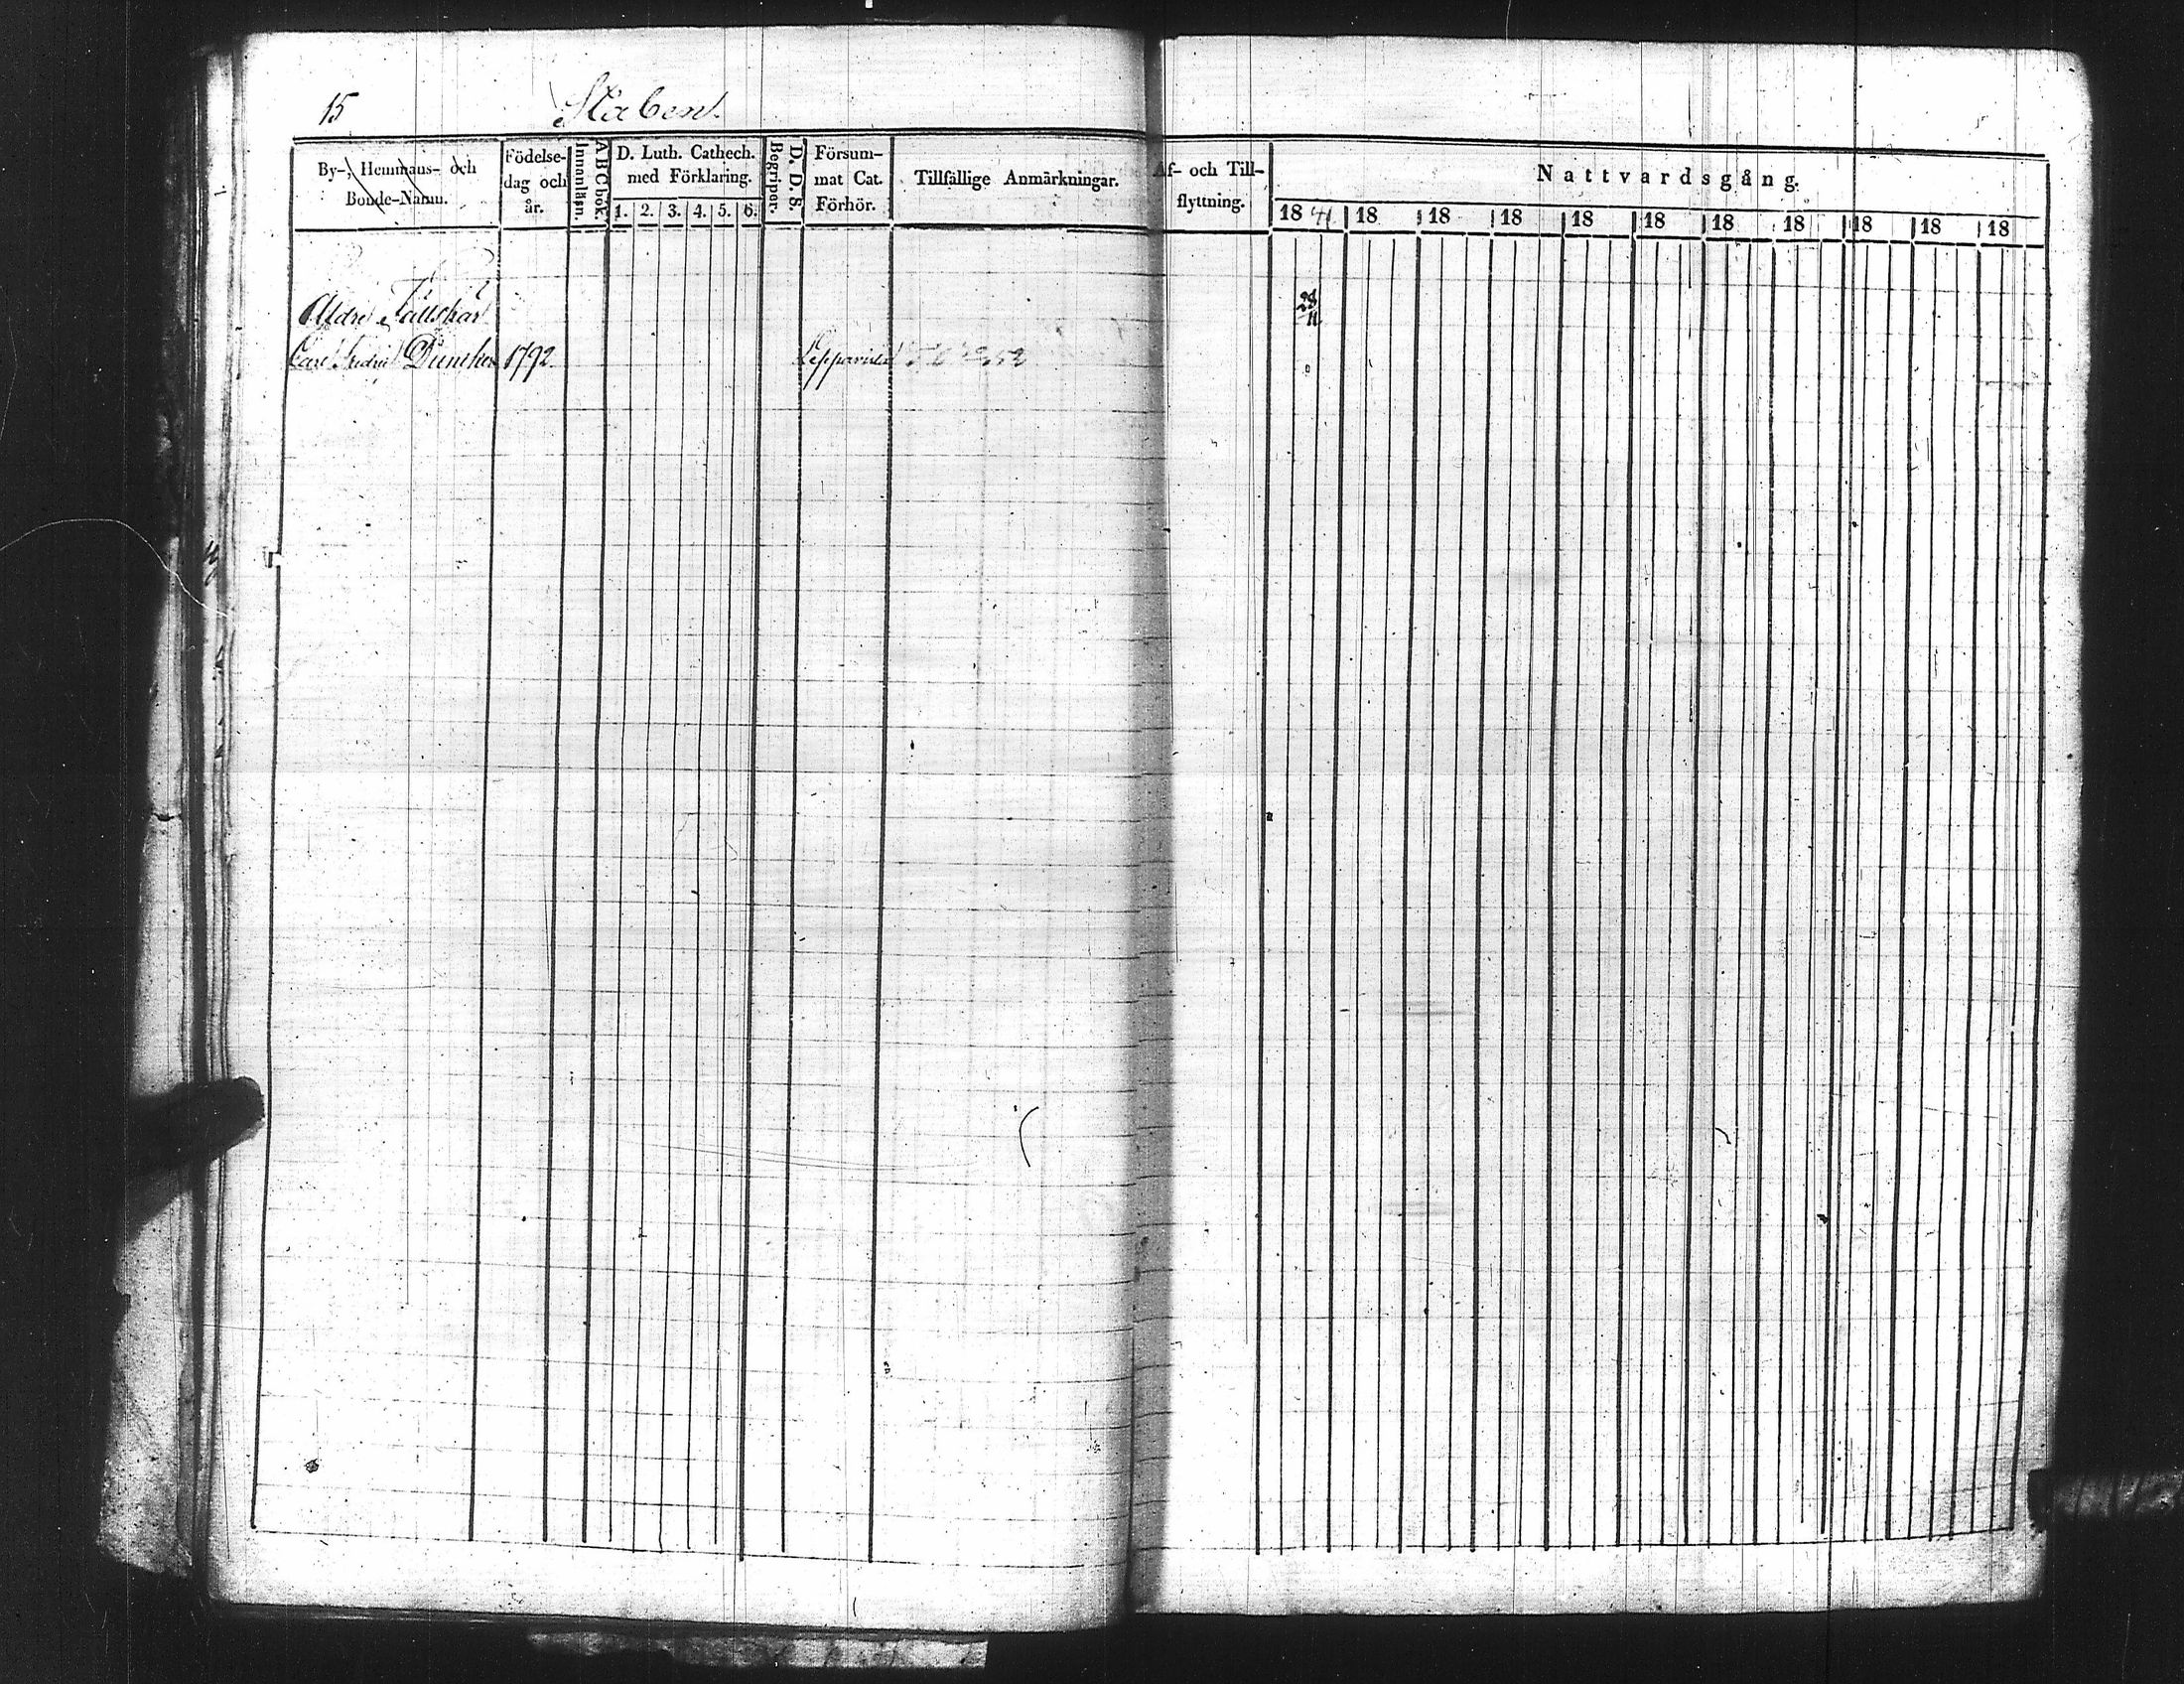 15 Staben.
By-, Hemmans- och Bonde-Namn.
Födelse-dag och år.
Innanläsn.
A B C bok.
D. Luth. Cathech. med Förklaring.
1. 2. 3. 4. 5. 6.
Begriper.
D. D. S.
Försum-mat Cat. Förhör.
Tillfällige Anmärkningar.
Af- och Till-flyttning.
Nattvardsgång.
18 41 18 18 18 18 18 18 18 18 18 18
Äldre Fältskär
Carl Fredric Duncker 1792.